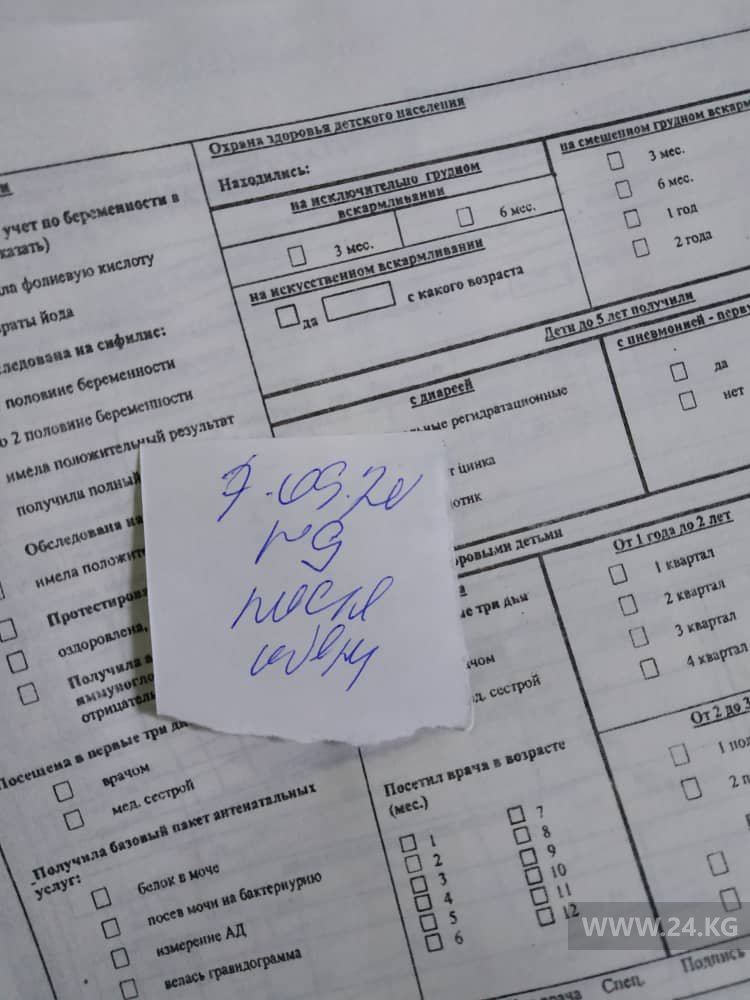 Охрана здоровья детского населения
Находились:
на исключительно грудном
вскармливании
3 мес.
6 мес.
на смешенном грудном вскарм
3 мес.
6 мес.
1 год
2 года
на искусственном вскармливании
да
с какого возраста
Дети до 5 лет получили
с диареей
льные регидратационные
т цинка
отик
с пневмонией - перву
да
нет
и
учет по беременности в
казать)
ла фолиевую кислоту
раты йода
ледована на сифилис:
половине беременности
о 2 половине беременности
имела положительный результат
получили полный
Обследована на
имела положите
Протестирова
оздоровлена,
Получила а
иммуногло
отрицател
7.05.20
после
обеда
оровыми детьми
а
ые три дня
ачом
д. сестрой
От 1 года до 2 лет
1 квартал
2 квартал
3 квартал
4 квартал
От 2 до 3
1 пол
2 п
Посещена в первые три дн
врачом
мед. сестрой
Получила базовый пакет антенатальных
услуг:
белок в моче
посев мочи на бактериурию
измерение АД
велась гравидограмма
Посетил врача в возрасте
(мес.)
1
2
3
4
5
6
7
8
9
10
11
12
врача Спец. Подпись
WWW.24.KG